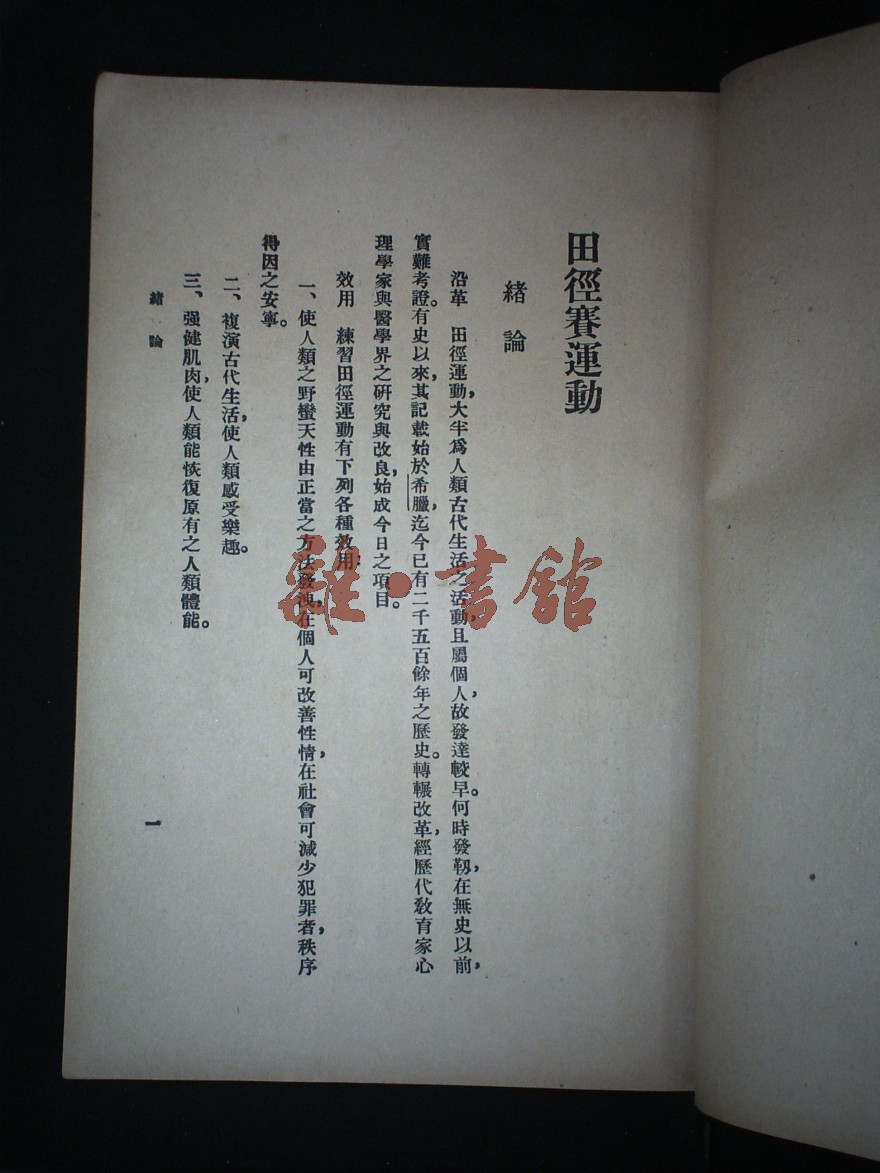 田徑賽運動
緒論
沿革 田徑運動，大半爲人類古代生活之活動，且屬個人，故發達較早。何時發軔，在無史以前，
實難考證。有史以來，其記載始於希臘，迄今已有二千五百餘年之歷史。轉輾改革，經歷代教育家心
理學家與醫學界之研究與改良，始成今日之項目。
效用 練習田徑運動有下列各種效用：
一、使人類之野蠻天性由正當之方法發洩，在個人可改善性情，在社會可減少犯罪者，秩序
得因之安寧。
二、複演古代生活，使人類感受樂趣。
三、强健肌肉，使人類能恢復原有之人類體能。
緒論
一
雜·書館